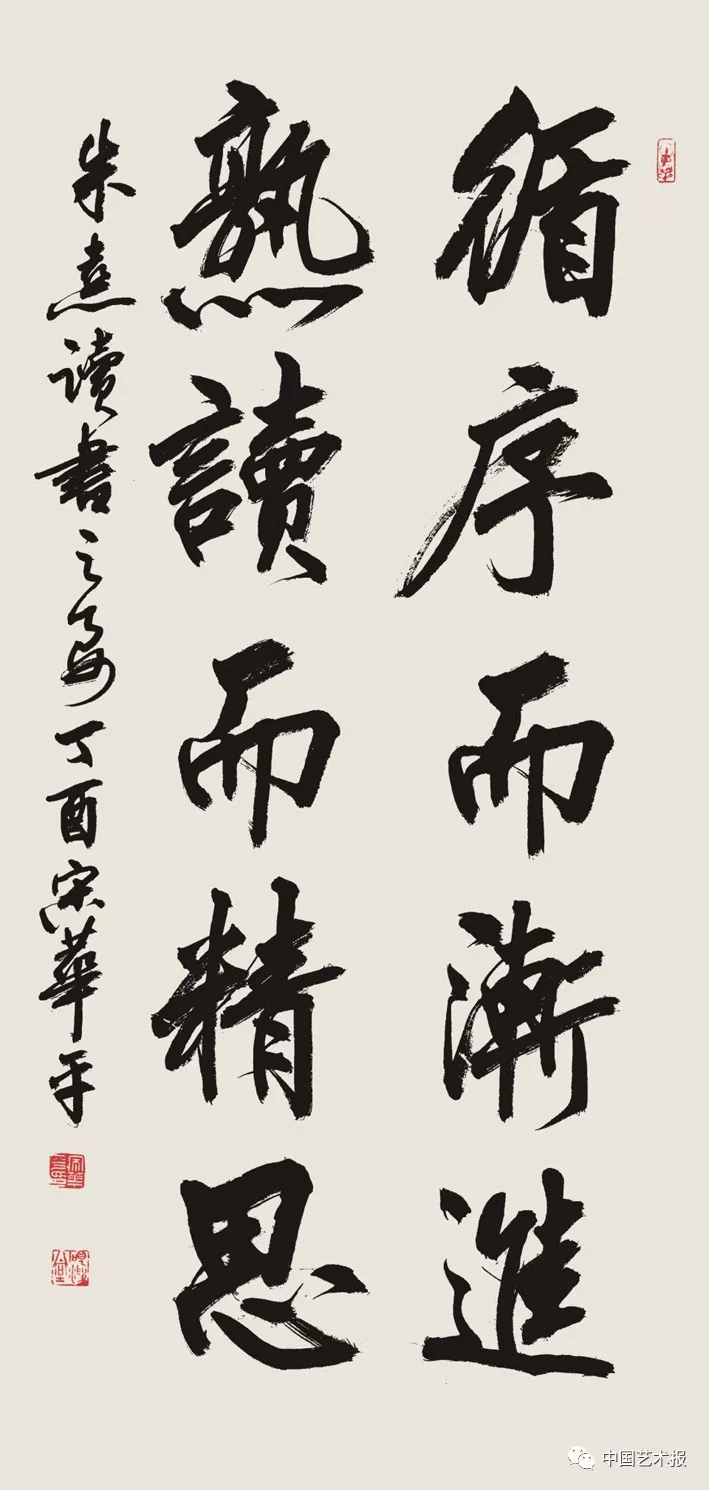 循序而漸進
熟讀而精思
朱熹讀書之要丁酉宋華平
中国艺术报